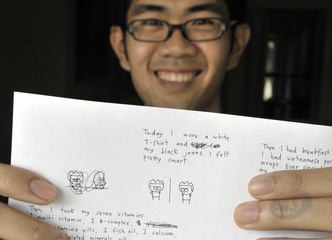 Today I wore a white
T-shirt and
my black jeans. I felt
pretty smart.
Then I had breakfast
I had vietnamese
wraps. Ever
Then I took my seven vitamins
1 multi vitamin, 1 B-complex
pills, 1 fish oil, 1 calcium
minerals